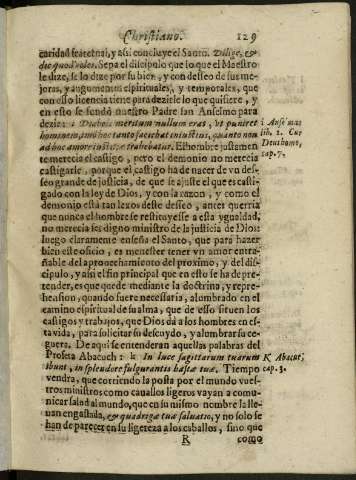 Christiano. 129
caridad fraternal, y asi concluye el Santo. Dilige, &
dic quod voles. Sepa el discipulo que lo que el Maestro
le dize, se lo dize por su bien, y con desseo de sus me-
joras, y augumentos espirituales, y temporales, que
con esso licencia tiene para dezirle lo que quisiere, y
en esto se fundò nuestro Padre san Anselmo para
dezir: i Diaboli meritum nullum erat, vt puniret
hominem, imò hoc tanto faciebat iniustius, quanto non
ad hoc amore iustitiæ trahebatur. El hombre justamen
te merecia el castigo, pero el demonio no merecia
castigarle, porque el castigo ha de nacer de vn des-
seo grande de justicia, de que se ajuste el que es casti-
gado con la ley de Dios, y con la razon, y como el
demonio està tan lexos deste desseo, antes querria
que nunca el hombre se restituyesse a esta ygualdad,
no merecia ser digno ministro de la justicia de Dios:
luego claramente enseña el Santo, que para hazer
bien este oficio, es menester tener vn amor entra-
ñable del aprouechamiento del proximo, y del dis-
cipulo, y asi el fin principal que en esto se ha de pre-
tender, es que quede mediante la doctrina, y repre-
hension, quando fuere necessaria, alumbrado en el
camino espiritual de su alma, que de esso siruen los
castigos y trabajos, que Dios dà a los hombres en es-
ta vida, para solicitar su descuydo, y alumbrar su ce-
guera. De aqui se entenderan aquellas palabras del
Profeta Abacuch: k In luce sagittarum tuarum
ibunt, in splendore fulgurantis hastæ tuæ. Tiempo
vendra, que corriendo la posta por el mundo vues-
tros ministros como cauallos ligeros vayan a comu-
nicar salud al mundo, que en su mismo nombre la lle-
uan engastada, & quadrigæ tuæ saluatio, y no solo se
han de parecer en su ligereza a los caballos, sino que
R como
i Ansel mus
lib. 2. Cur
Deus homo,
cap. 7.
K Abacuc,
cap. 3.